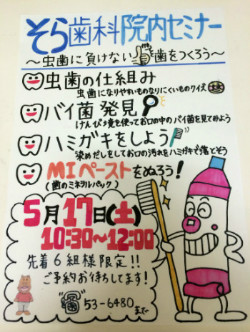 そら歯科院内セミナー
～虫歯に負けない歯をつくろう～
虫歯の仕組み
虫歯になりやすいものなりにくいものクイズ
バイ菌発見
けんび鏡を使ってお口の中のバイ菌を見てみよう
ハミガキをしよう
染めだしをしてお口の汚れをハミガキで落とそう
MIペーストをぬろう!
(歯のミネラルパック)
5月17日(土)
10:30～12:00
先着6組様限定!!
ご予約お待ちしてます!
53-6480まで